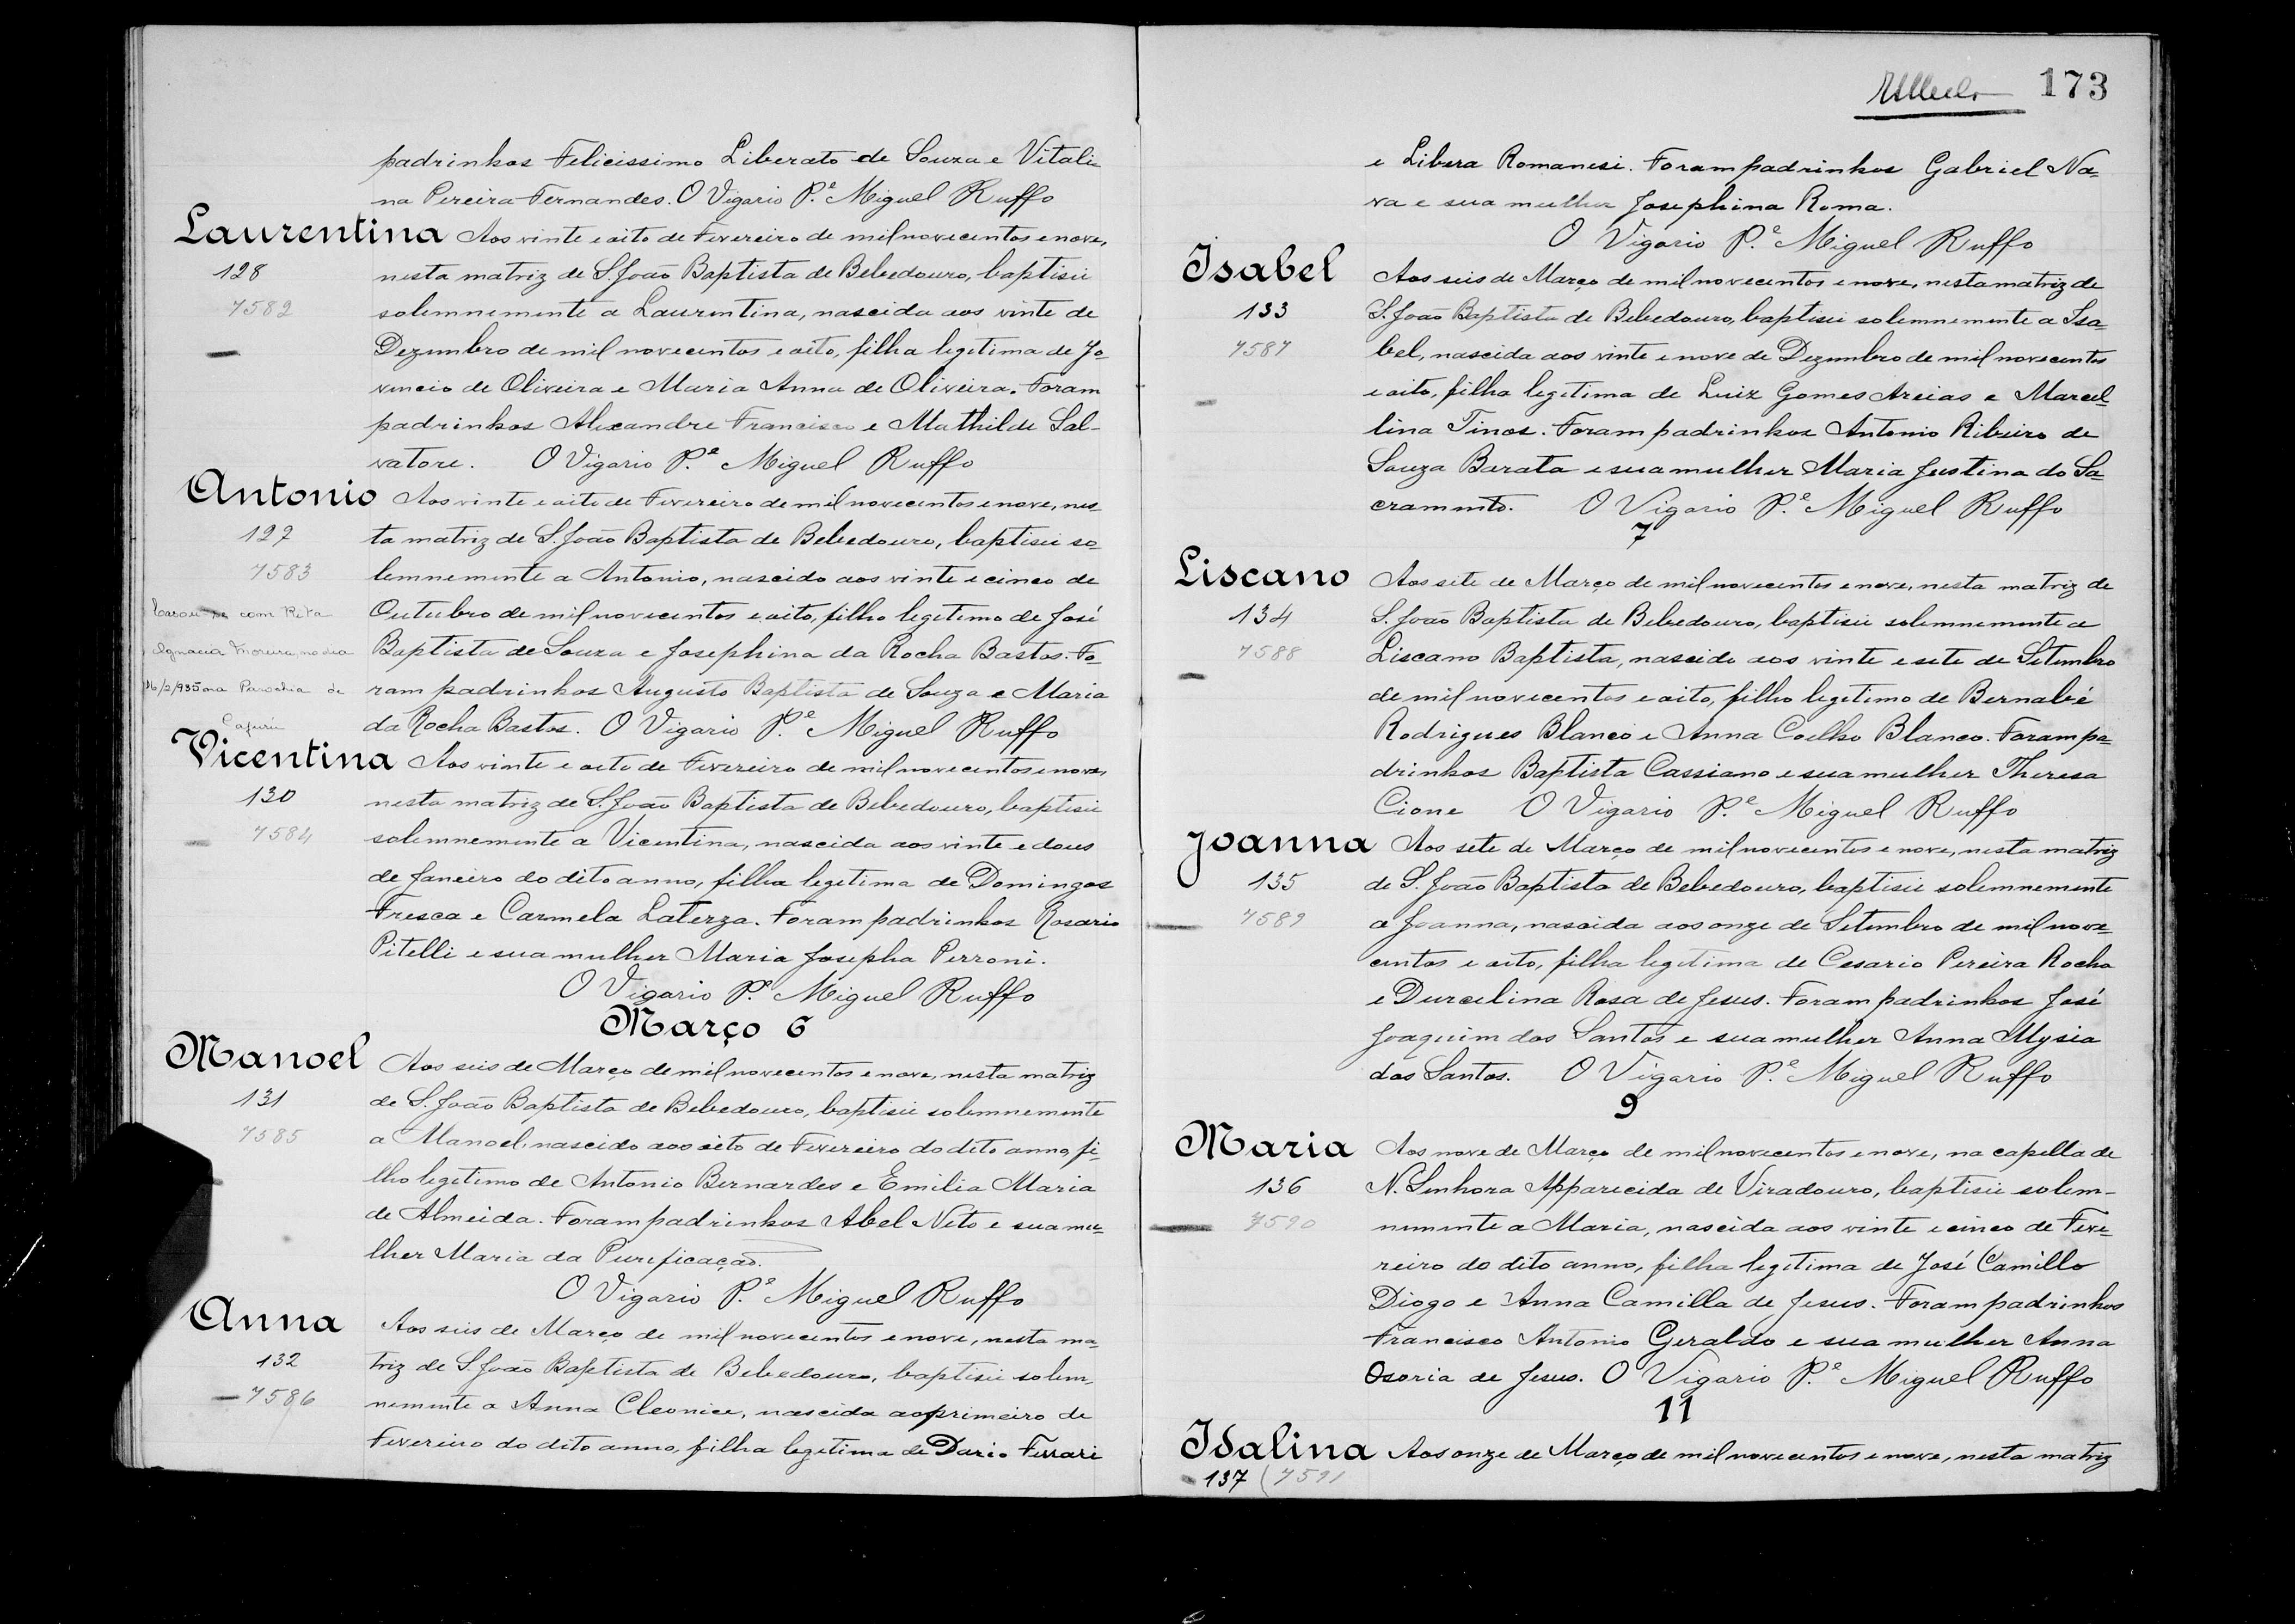 padrinhos Felicissimo Liberato de Souza e Vitali
na Pereira Fernandes. O Vigario P.e Miguel Ruffo
Laurentina Aos vinte e oito de Fevereiro de mil novecentos e nove,
128 nesta matriz de S. João Baptista de Bebedouro, baptisei
7582 solemnemente a Laurentina, nascida aos vinte de
Dezembro de mil novecentos e oito, filha legitima de Jo-
vencio de Oliveira e Maria Anna de Oliveira. Foram
padrinhos Alexandre Francisco e Mathilde Sal-
vatore. O Vigario P.e Miguel Ruffo
Antonio Aos vinte e oito de Fevereiro de mil novecentos e nove, nes-
129 ta matriz de S. João Baptista de Bebedouro, baptisei so-
7583 lemnemente a Antonio, nascido aos vinte e cinco de
Casou-se com Rita Outubro de mil novecentos e oito, filho legitimo de José
Ignacia Moreira, no dia Baptista de Souza e Josephina da Rocha Bastos. Fo-
16/2/935 na Parochia de ram padrinhos Augusto Baptista de Souza e Maria
da Rocha Bastos. O Vigario P.e Miguel Ruffo
Vicentina Aos vinte e oito de Fevereiro de mil novecentos e nove,
130 nesta matriz de S. João Baptista de Bebedouro, baptisei
7584 solemnemente a Vicentina, nascida aos vinte e dous
de Janeiro do dito anno, filha legitima de Domingos
Fresca e Carmela Laterza. Foram padrinhos Rosario
Pitelli e sua mulher Maria Josepha Perroni.
O Vigario P.e Miguel Ruffo
Março 6
Manoel Aos seis de Março de mil novecentos e nove, nesta matriz
131 de S. João Baptista de Bebedouro, baptisei solemnemente
7585 a Manoel, nascido aos oito de Fevereiro do dito anno, fi-
lho legitimo de Antonio Bernardes e Emilia Maria
de Almeida. Foram padrinhos Abel Neto e sua mu-
lher Maria da Purificação.
O Vigario P.e Miguel Ruffo
Anna Aos seis de Março de mil novecentos e nove, nesta ma-
132 triz de S. João Baptista de Bebedouro, baptisei solem-
7586 nemente a Anna Cleonice, nascida ao primeiro de
Fevereiro do dito anno, filha legitima de Dario Ferrari
173
e Libera Romanesi. Foram padrinhos Gabriel Na-
va e sua mulher Josephina Roma.
O Vigario P.e Miguel Ruffo
Isabel Aos seis de Março de mil novecentos e nove, nesta matriz de
133 S. João Baptista de Bebedouro, baptisei solemnemente a Isa-
7587 bel, nascida aos vinte e nove de Dezembro de mil novecentos
e oito, filha legitima de Luiz Gomes Areias e Marcel-
lina Tinos. Foram padrinhos Antonio Ribeiro de
Souza Barata e sua mulher Maria Justina do Sa-
cramento. O Vigario P.e Miguel Ruffo
7
Liscano Aos sete de Março de mil novecentos e nove, nesta matriz de
134 S. João Baptista de Bebedouro, baptisei solemnemente a
7588 Liscano Baptista, nascido aos vinte e sete de Setembro
de mil novecentos e oito, filho legitimo de Bernabé
Rodrigues Blanco e Anna Coelho Blanco. Foram pa-
drinhos Baptista Cassiano e sua mulher Theresa
Cione O Vigario P.e Miguel Ruffo
Joanna Aos sete de Março de mil novecentos e nove, nesta matriz
135 de S. João Baptista de Bebedouro, baptisei solemnemente
7589 a Joanna, nascida aos onze de Setembro de mil nove-
centos e oito, filha legitima de Cesario Pereira Rocha
e Durcelina Rosa de Jesus. Foram padrinhos José
Joaquim dos Santos e sua mulher Anna Mysia
dos Santos. O Vigario P.e Miguel Ruffo
9
Maria Aos nove de Março de mil novecentos e nove, na capella de
136 N. Senhora Apparecida de Viradouro, baptisei solem-
7590 nemente a Maria, nascida aos vinte e cinco de Feve-
reiro do dito anno, filha legitima de José Camillo
Diogo e Anna Camilla de Jesus. Foram padrinhos
Francisco Antonio Geraldo e sua mulher Anna
Osoria de Jesus. O Vigario P.e Miguel Ruffo
11
Idalina Aos onze de Março de mil novecentos e nove, nesta matriz
137 (7591